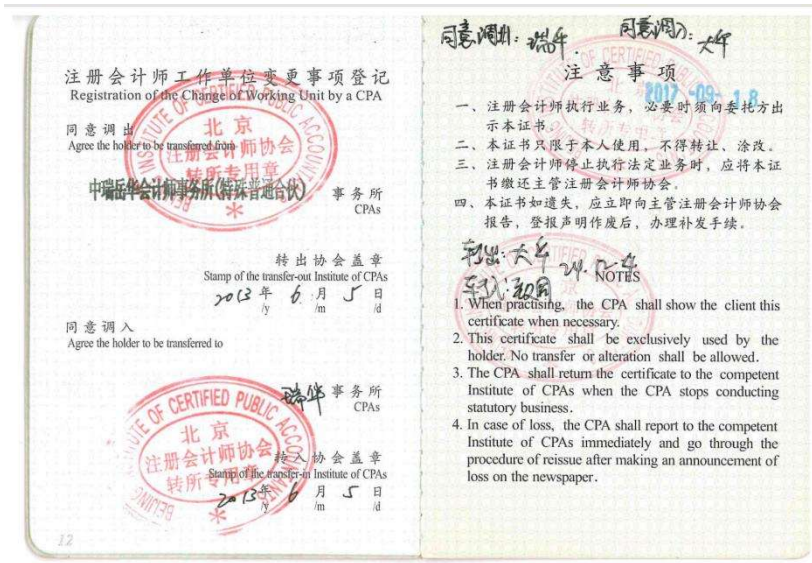 注册会计师工作单位变更事项登记
Registration of the Change of Working Unit by a CPA
同意调出
Agree the holder to be transferred from
中瑞岳华会计师事务所(特殊普通合伙)
事务所
CPAs
转出协会盖章
Stamp of the transfer-out Institute of CPAs
2013年 6月 5日
/y /m /d
同意调入
Agree the holder to be transferred to
瑞华 事务所
CPAs
转入协会盖章
Stamp of the transfer-in Institute of CPAs
2013年 6月 5日
/y /m /d
北京
注册会计师协会
转所专用章
BEIJING INSTITUTE OF CERTIFIED PUBLIC ACCOUNTANTS
北京
注册会计师协会
转所专用章
12
同意调出: 瑞华. 同意调入: 大华
注意事项
2017-09-18
一、注册会计师执行业务,必要时须向委托方出
示本证书。
二、本证书只限于本人使用,不得转让、涂改。
三、注册会计师停止执行法定业务时,应将本证
书缴还主管注册会计师协会。
四、本证书如遗失,应立即向主管注册会计师协会
报告,登报声明作废后,办理补发手续。
转出: 大华
NOTES
1. When practising, the CPA shall show the client this
certificate when necessary.
2. This certificate shall be exclusively used by the
holder. No transfer or alteration shall be allowed.
3. The CPA shall return the certificate to the competent
Institute of CPAs when the CPA stops conducting
statutory business.
4. In case of loss, the CPA shall report to the competent
Institute of CPAs immediately and go through the
procedure of reissue after making an announcement of
loss on the newspaper.